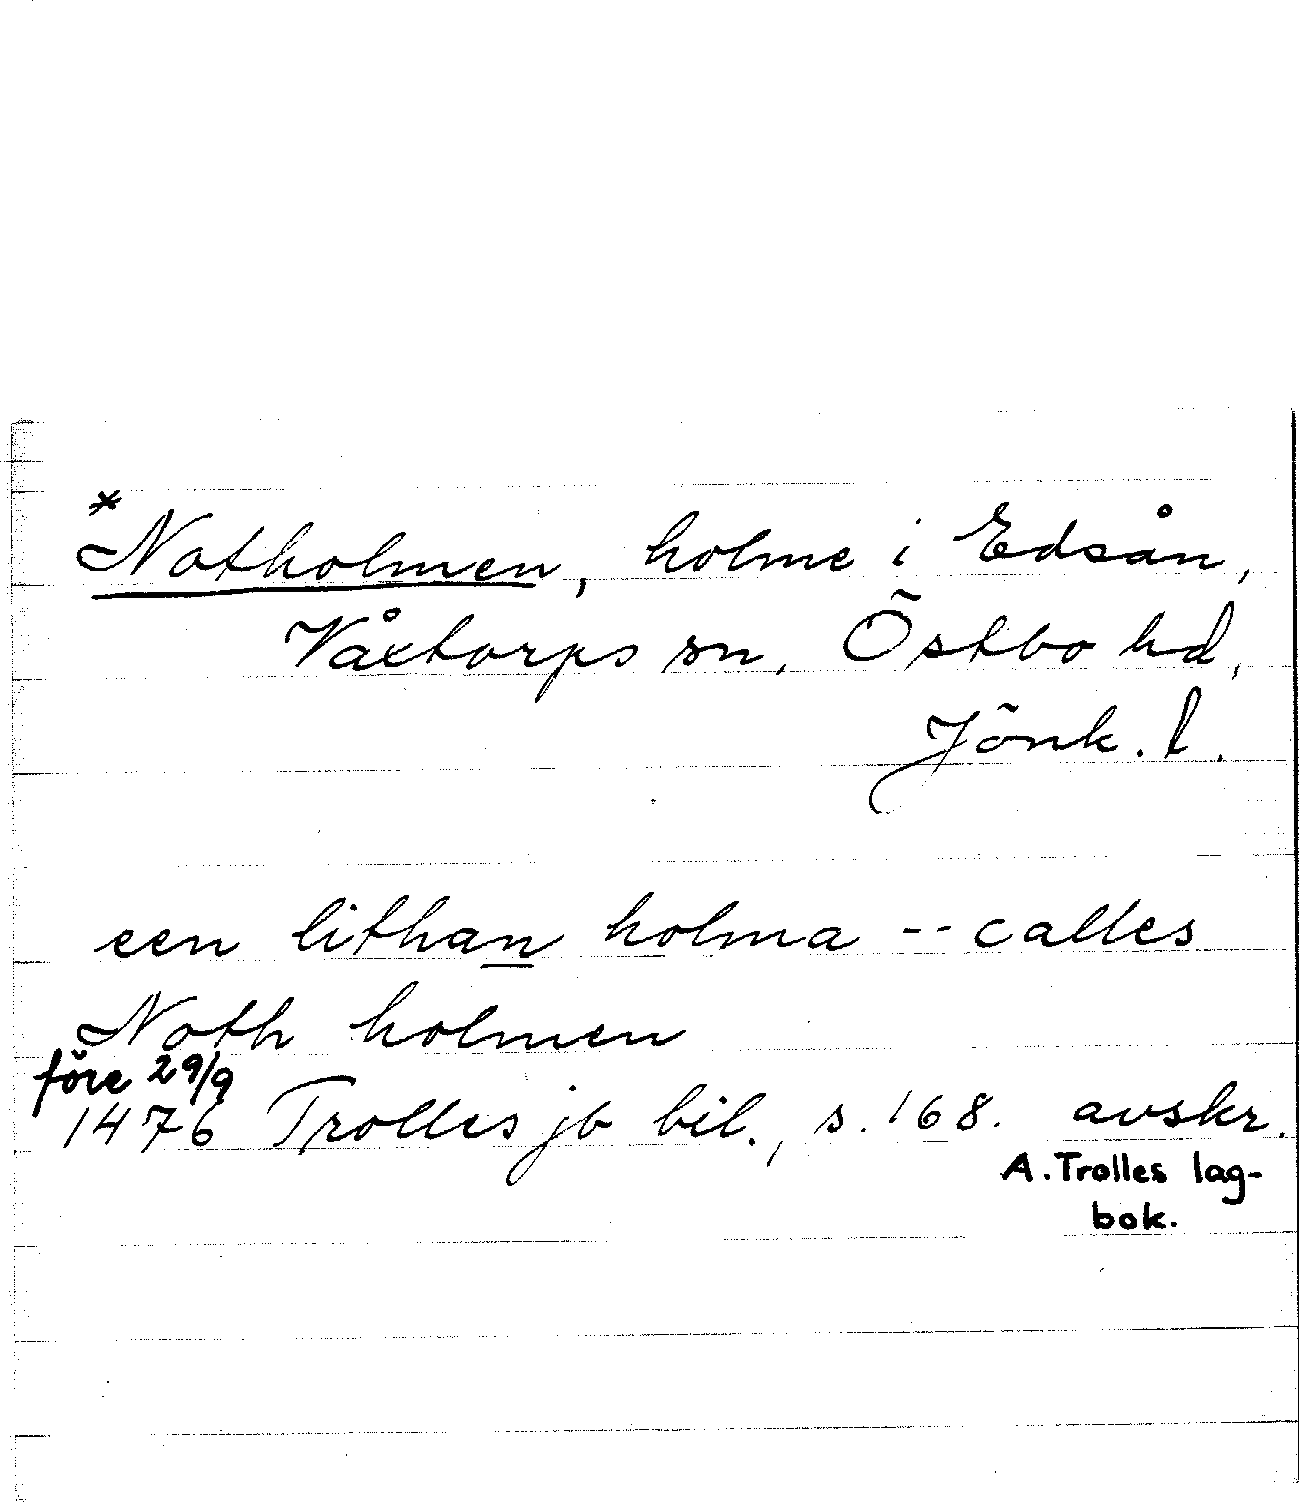 *Notholmen, holme i Edsån,
Våxtorps sn, Östbo hd,
Jönk. l.
een lithan holma -- calles
Noth holmen
före 29/9
1476 Trolles jb bil., s. 168. avskr.
A. Trolles lag-
bok.